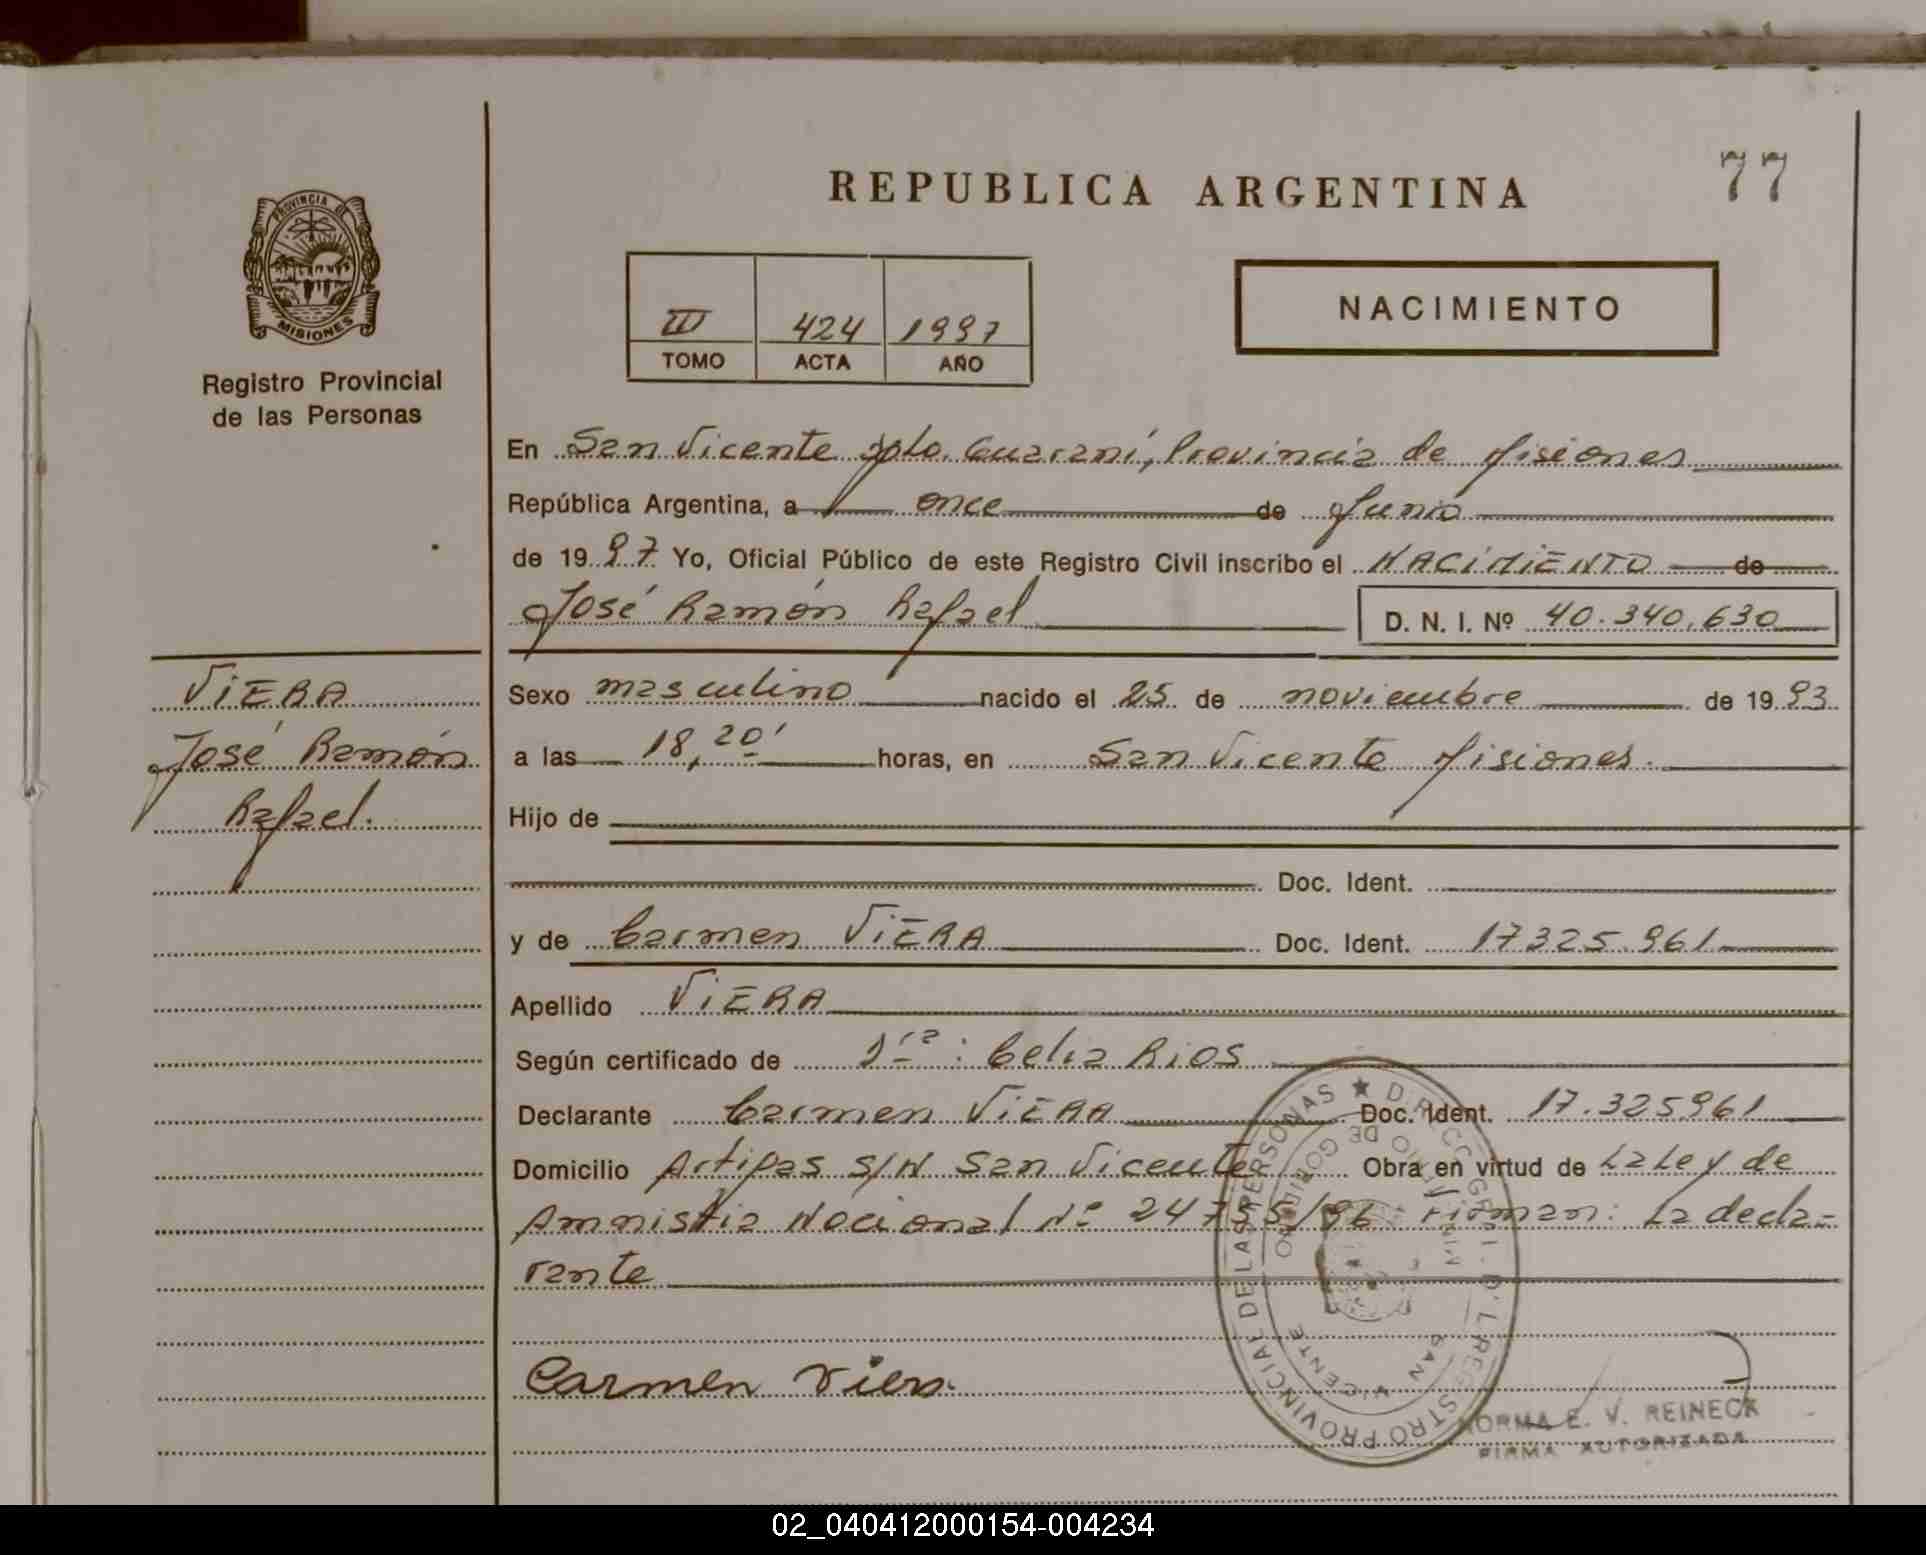 77
REPUBLICA ARGENTINA
PROVINCIA DE
MISIONES
Registro Provincial
de las Personas
III 424 1997
TOMO ACTA AÑO
NACIMIENTO
En San Vicente Dpto. Guaraní, Provincia de Misiones
República Argentina, a once de Junio
de 1997 Yo, Oficial Público de este Registro Civil inscribo el NACIMIENTO de
José Ramón Rafael D. N. I. Nº 40.340.630
VIERA
José Ramón
Rafael.
Sexo masculino nacido el 25 de noviembre de 1993
a las 18,20' horas, en San Vicente Misiones.
Hijo de
Doc. Ident.
y de Carmen VIERA Doc. Ident. 17325.961
Apellido VIERA
Según certificado de Celia Rios
Declarante Carmen VIERA Doc. Ident. 17.325961
Domicilio Artigas S/N San Vicente Obra en virtud de La Ley de
Amnistia Nacional Nº 24755/96 Firman: La decla-
rante
Carmen Viera
SAN VICENTE
NORMA E. V. REINECK
FIRMA AUTORIZADA
02_040412000154-004234